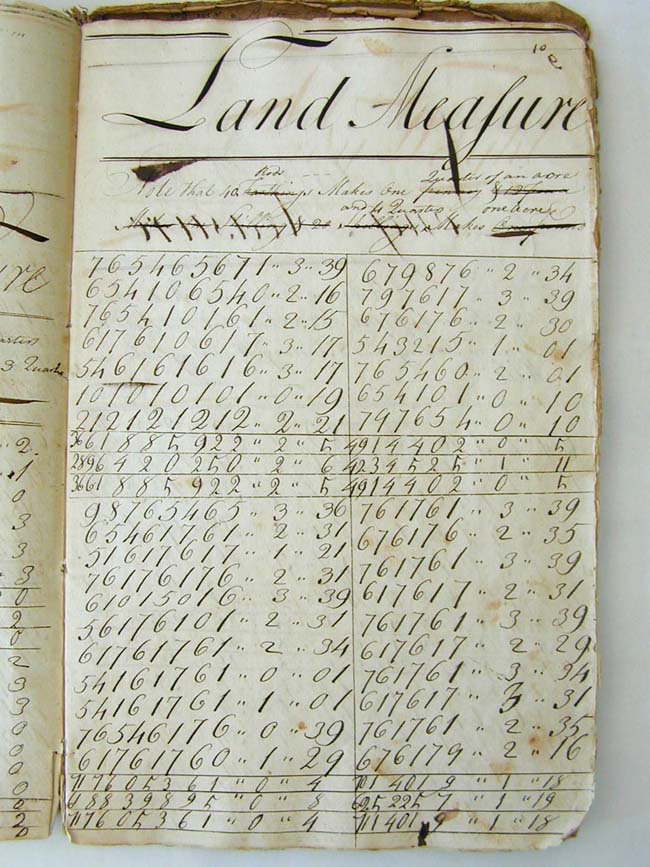 10
Land Meaſure
Rods Quarter of an acre
Note that 40 Makes One
and 4 Quarters one acre
Makes
765465671 " 3 " 39 679876 " 2 " 34
654106540 " 2 " 16 797617 " 3 " 39
765410161 " 2 " 15 676176 " 2 " 30
617610617 " 3 " 17 543215 " 1 " 01
546161616 " 3 " 17 765460 " 2 " 01
101010101 " 0 " 19 654101 " 0 " 10
212121212 " 2 " 21 797654 " 0 " 10
3661885922 " 2 " 5 4914402 " 0 " 5
2896420250 " 2 " 6 4234525 " 1 " 11
3661885922 " 2 " 5 4914402 " 0 " 5
98765465 " 3 " 36 761761 " 3 " 39
65461761 " 2 " 31 676176 " 2 " 35
51617617 " 1 " 21 761761 " 3 " 39
76176176 " 2 " 31 617617 " 2 " 31
61015016 " 3 " 39 761761 " 3 " 39
56176101 " 2 " 31 617617 " 2 " 29
61761761 " 2 " 34 761761 " 3 " 34
54161761 " 0 " 01 617617 " 3 " 31
54161761 " 1 " 01 761761 " 2 " 35
76546176 " 0 " 39 676179 " 2 " 16
61761760 " 1 " 29
" 0 " 4 " 1 " 18
688839895 " 0 " 8 " 1 " 19
" 0 " 4 " 1 " 18